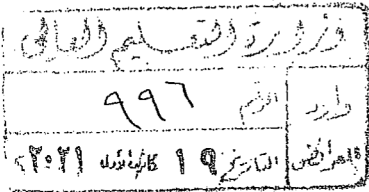 وزارة التعليم العالي
وارد الرقم ٩٩٦
العرائض التاريخ ١٩ كانون الأول ٢٠٢١